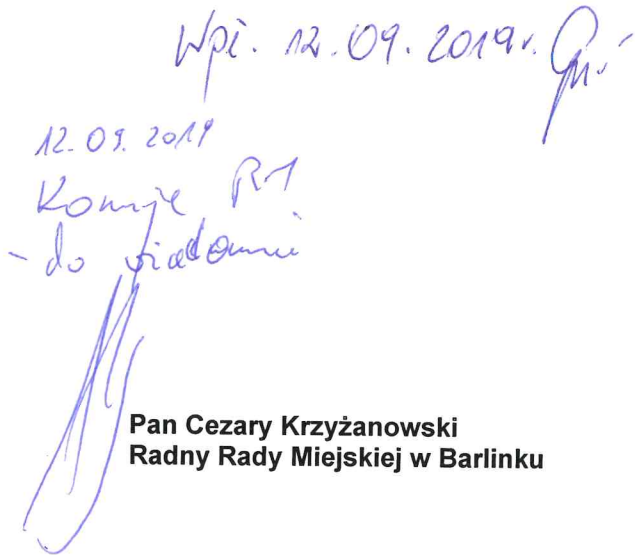 Wpł. 12.09.2019r.
12.09.2019
Komisje RM
- do wiadomości
Pan Cezary Krzyżanowski
Radny Rady Miejskiej w Barlinku